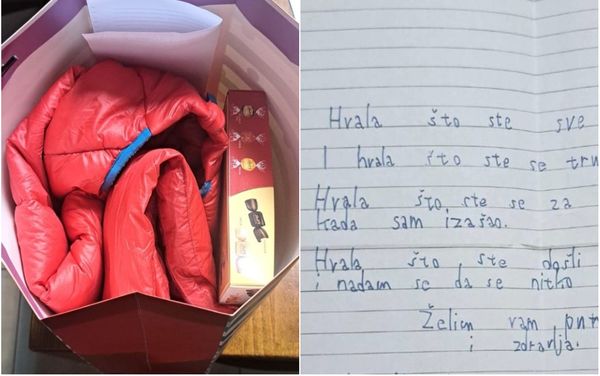 Hvala što ste sve
I hvala što ste se tru
Hvala što ste se za
kada sam izašao.
Hvala što ste došli
i nadam se da se nitko
Želim vam
i zdravlja.